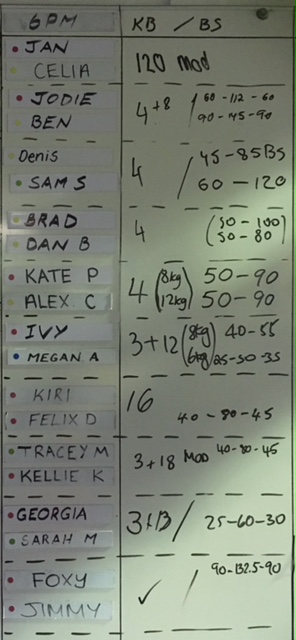 6PM KB / BS
JAN
CELIA
120 mod
JODIE
BEN
4+8 / 60-112-60
90-145-90
Denis
SAM S
4 / 45-85BS
60-120
BRAD
DAN B
4 (50-100)
(50-80)
KATE P
ALEX C
4 (8kg) 50-90
(12kg) 50-90
IVY
MEGAN A
3+12 (8kg) 40-55
(6kg) 25-50-35
KIRI
FELIX D
16
40-80-45
TRACEY M
KELLIE K
3+18 MOD 40-80-45
GEORGIA
SARAH M
3+13 / 25-60-30
FOXY
JIMMY
✓ / 90-132.5-90